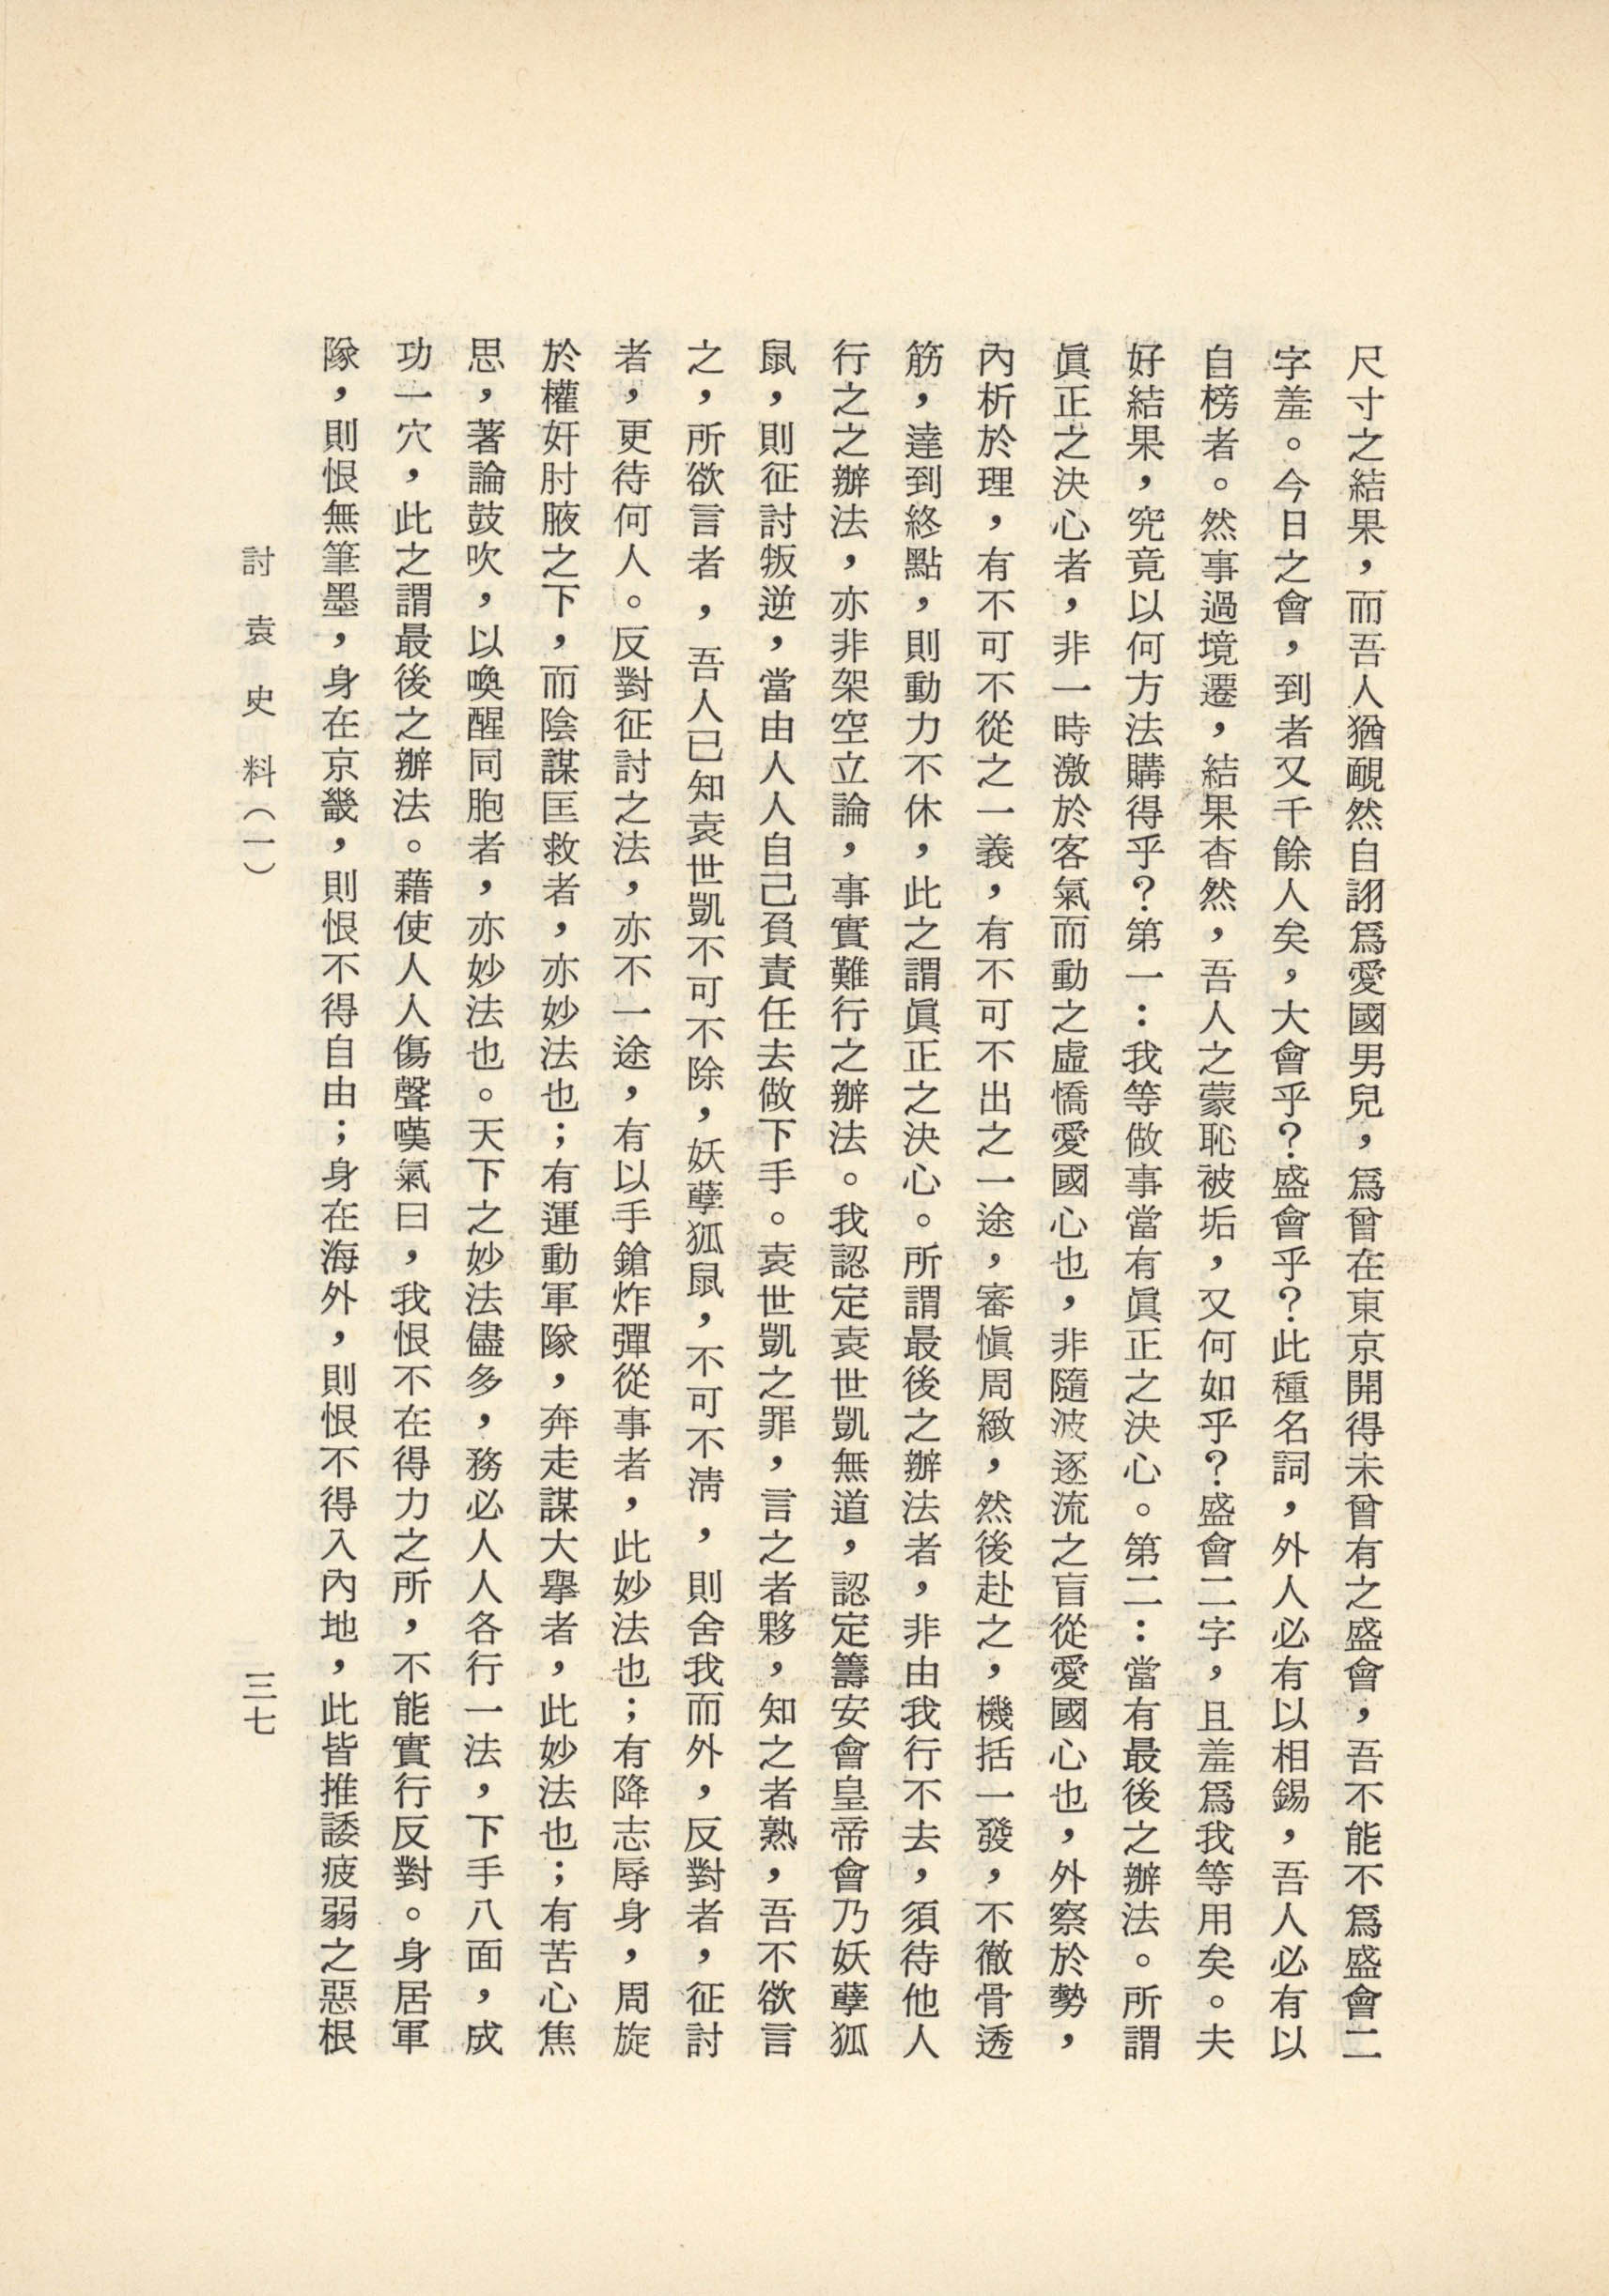 尺寸之結果，而吾人猶靦然自詡爲愛國男兒，爲曾在東京開得未曾有之盛會，吾不能不爲盛會二
字羞。今日之會，到者又千餘人矣，大會乎？盛會乎？此種名詞，外人必有以相錫，吾人必有以
自榜者。然事過境遷，結果杳然，吾人之蒙恥被垢，又何如乎？盛會二字，且羞爲我等用矣。夫
好結果，究竟以何方法購得乎？第一：我等做事當有眞正之決心。第二：當有最後之辦法。所謂
眞正之決心者，非一時激於客氣而動之虛憍愛國心也，非隨波逐流之盲從愛國心也，外察於勢，
內析於理，有不可不從之一義，有不可不出之一途，審愼周緻，然後赴之，機括一發，不徹骨透
筋，達到終點，則動力不休，此之謂眞正之決心。所謂最後之辦法者，非由我行不去，須待他人
行之之辦法，亦非架空立論，事實難行之辦法。我認定袁世凱無道，認定籌安會皇帝會乃妖孽狐
鼠，則征討叛逆，當由人人自己負責任去做下手。袁世凱之罪，言之者夥，知之者熟，吾不欲言
之，所欲言者，吾人已知袁世凱不可不除，妖孽狐鼠，不可不淸，則舍我而外，反對者，征討
者，更待何人。反對征討之法，亦不一途，有以手鎗炸彈從事者，此妙法也；有降志辱身，周旋
於權奸肘腋之下，而陰謀匡救者，亦妙法也；有運動軍隊，奔走謀大舉者，此妙法也；有苦心焦
思，著論鼓吹，以喚醒同胞者，亦妙法也。天下之妙法儘多，務必人人各行一法，下手八面，成
功一穴，此之謂最後之辦法。藉使人人傷聲嘆氣曰，我恨不在得力之所，不能實行反對。身居軍
隊，則恨無筆墨，身在京畿，則恨不得自由；身在海外，則恨不得入內地，此皆推諉疲弱之惡根
討袁史料（一）
三七